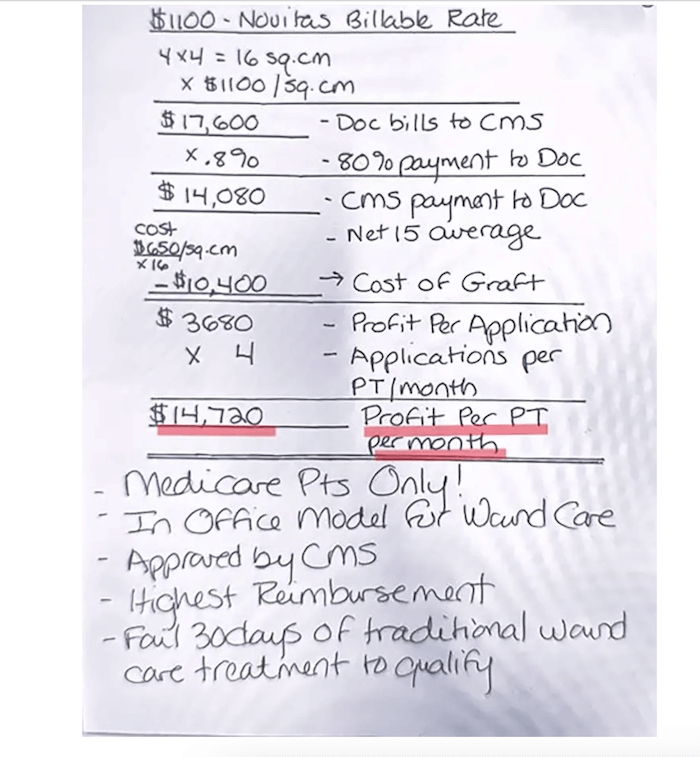 $1100 - Novitas Billable Rate
4x4 = 16 sq.cm
x $1100 / sq.cm
$17,600 - Doc bills to CMS
x .8% - 80% payment to Doc
$14,080 - CMS payment to Doc
- Net 15 average
cost
$650/sq.cm
x 16
- $10,400 → Cost of Graft
$3680 - Profit Per Application
x 4 - Applications per
PT/month
$14,720 Profit Per PT
per month
- Medicare Pts Only!
- In Office Model for Wound Care
- Approved by CMS
- Highest Reimbursement
- Fail 30days of traditional wound
care treatment to qualify